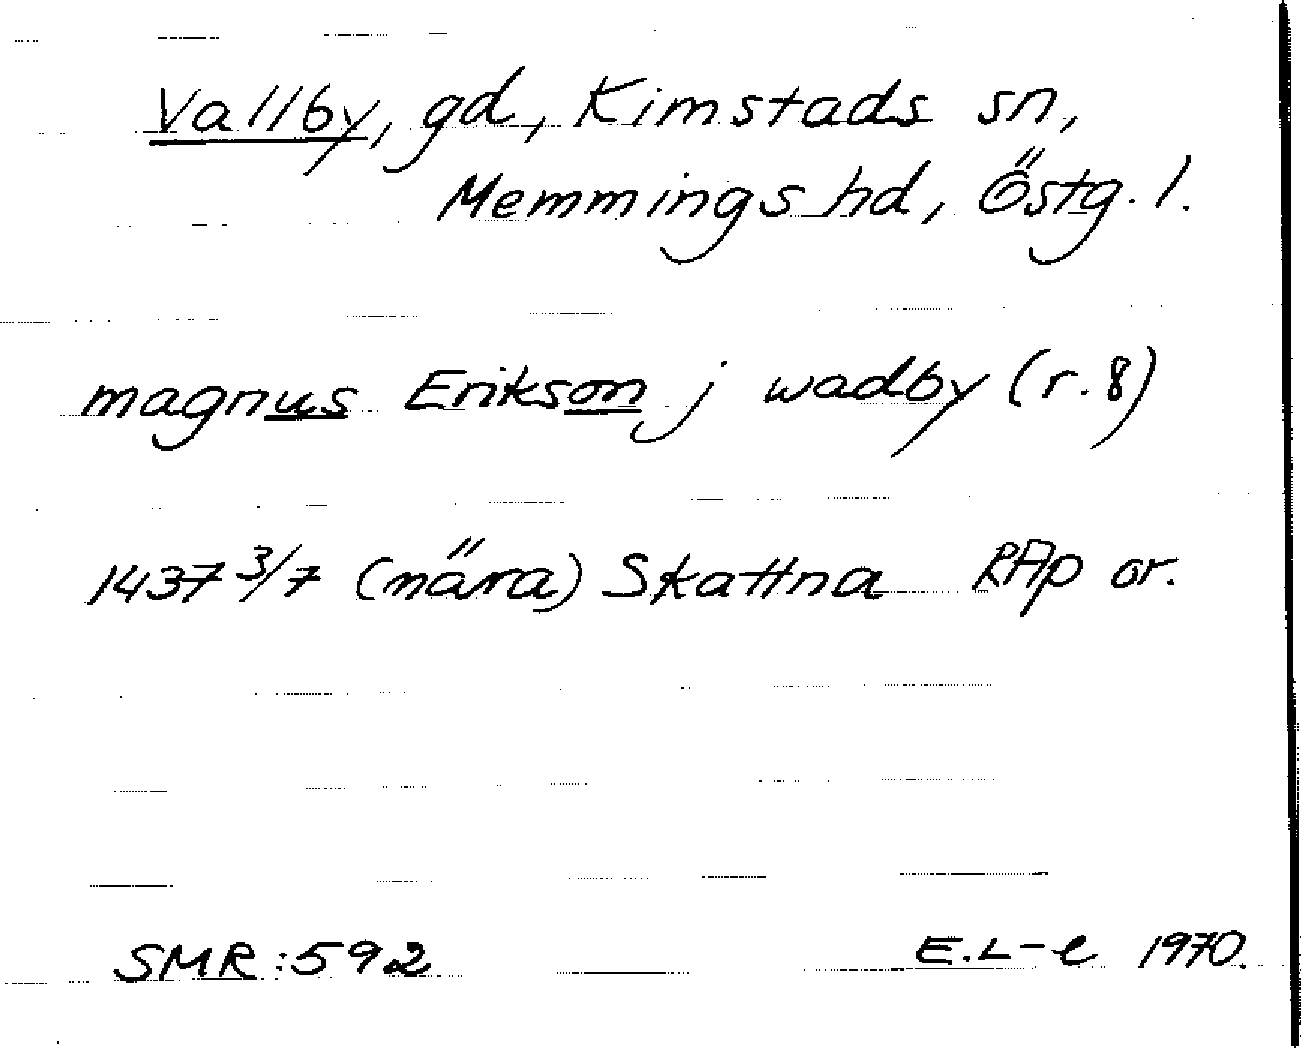 Vallby, gd, Kimstads sn,
Memmings hd, Östg. l.
magnus Erikson j wadby (r. 8)
1437 3/7 (nära) Skattna RAp or.
SMR: 592 E.L-e 1970.